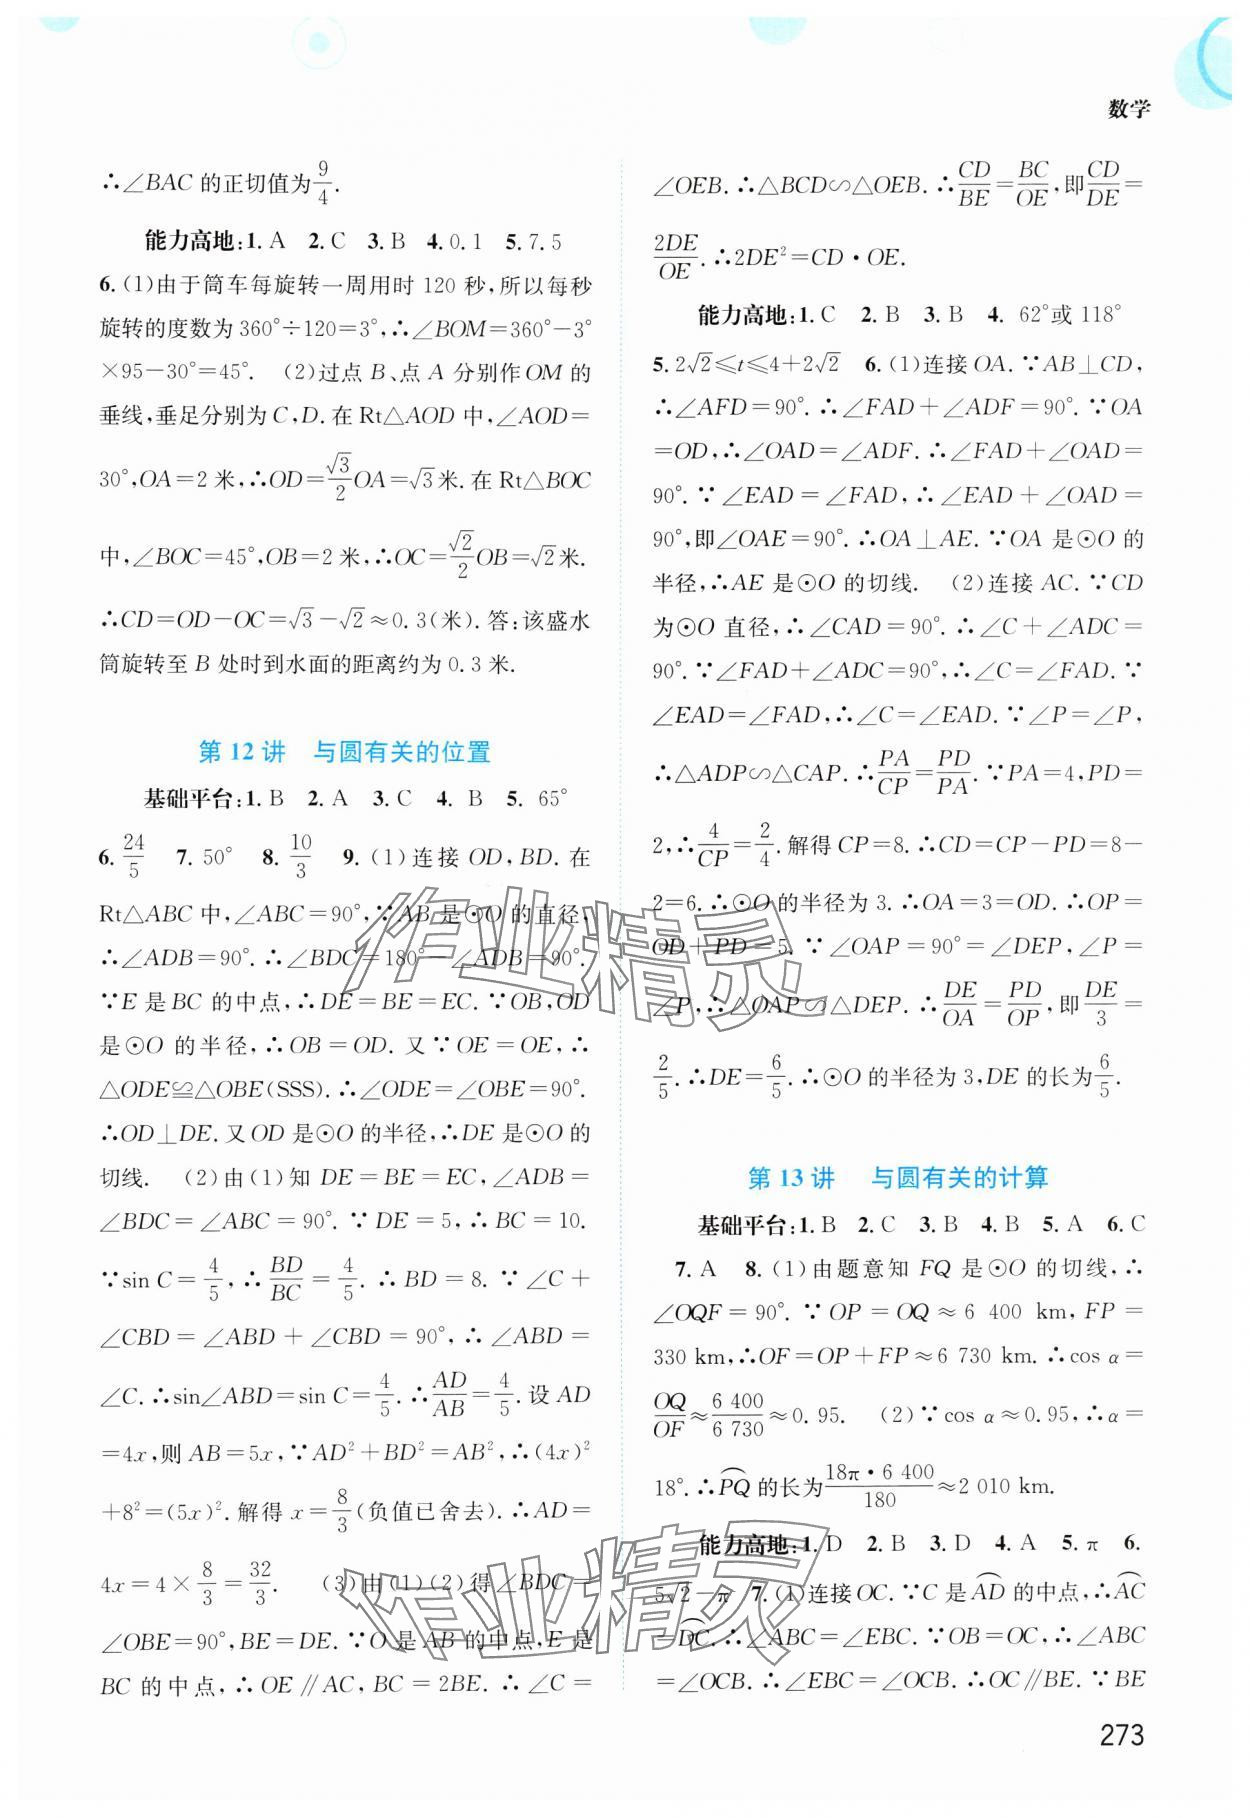 数学
∴∠BAC 的正切值为9/4.
能力高地:1. A 2. C 3. B 4. 0.1 5. 7.5
6. (1)由于筒车每旋转一周用时 120 秒,所以每秒
旋转的度数为 360°÷120=3°,∴∠BOM=360°-3°
×95-30°=45°. (2)过点 B、点 A 分别作 OM 的
垂线,垂足分别为 C,D. 在 Rt△AOD 中,∠AOD=
30°,OA=2 米,∴OD=√3/2 OA=√3米. 在 Rt△BOC
中,∠BOC=45°,OB=2 米,∴OC=√2/2 OB=√2米.
∴CD=OD-OC=√3-√2≈0.3(米). 答:该盛水
筒旋转至 B 处时到水面的距离约为 0.3 米.
第 12 讲 与圆有关的位置
基础平台:1. B 2. A 3. C 4. B 5. 65°
6. 24/5 7. 50° 8. 10/3 9. (1)连接 OD,BD. 在
Rt△ABC 中,∠ABC=90°,∵AB 是⊙O 的直径,
∴∠ADB=90°. ∴∠BDC=180°-∠ADB=90°.
∵E 是 BC 的中点,∴DE=BE=EC. ∵OB,OD
是⊙O 的半径,∴OB=OD. 又∵OE=OE,∴
△ODE≌△OBE(SSS). ∴∠ODE=∠OBE=90°.
∴OD⊥DE. 又 OD 是⊙O 的半径,∴DE 是⊙O 的
切线. (2)由(1)知 DE=BE=EC,∠ADB=
∠BDC=∠ABC=90°. ∵DE=5,∴BC=10.
∵sin C=4/5,∴BD/BC=4/5. ∴BD=8. ∵∠C+
∠CBD=∠ABD+∠CBD=90°,∴∠ABD=
∠C. ∴sin∠ABD=sin C=4/5. ∴AD/AB=4/5. 设 AD
=4x,则 AB=5x,∵AD²+BD²=AB²,∴(4x)²
+8²=(5x)². 解得 x=8/3(负值已舍去). ∴AD=
4x=4×8/3=32/3. (3)由(1)(2)得∠BDC=
∠OBE=90°,BE=DE. ∵O 是 AB 的中点,E 是
BC 的中点,∴OE∥AC,BC=2BE. ∴∠C=
∠OEB. ∴△BCD∽△OEB. ∴CD/BE=BC/OE,即CD/DE=
2DE/OE. ∴2DE²=CD·OE.
能力高地:1. C 2. B 3. B 4. 62°或 118°
5. 2√2≤t≤4+2√2 6. (1)连接 OA. ∵AB⊥CD,
∴∠AFD=90°. ∴∠FAD+∠ADF=90°. ∵OA
=OD,∴∠OAD=∠ADF. ∴∠FAD+∠OAD=
90°. ∵∠EAD=∠FAD,∴∠EAD+∠OAD=
90°,即∠OAE=90°. ∴OA⊥AE. ∵OA 是⊙O 的
半径,∴AE 是⊙O 的切线. (2)连接 AC. ∵CD
为⊙O 直径,∴∠CAD=90°. ∴∠C+∠ADC=
90°. ∵∠FAD+∠ADC=90°,∴∠C=∠FAD. ∵
∠EAD=∠FAD,∴∠C=∠EAD. ∵∠P=∠P,
∴△ADP∽△CAP. ∴PA/CP=PD/PA. ∵PA=4,PD=
2,∴4/CP=2/4. 解得 CP=8. ∴CD=CP-PD=8-
2=6. ∴⊙O 的半径为 3. ∴OA=3=OD. ∴OP=
OD+PD=5. ∵∠OAP=90°=∠DEP,∠P=
∠P,∴△OAP∽△DEP. ∴DE/OA=PD/OP,即DE/3=
2/5. ∴DE=6/5. ∴⊙O 的半径为 3,DE 的长为6/5.
第 13 讲 与圆有关的计算
基础平台:1. B 2. C 3. B 4. B 5. A 6. C
7. A 8. (1)由题意知 FQ 是⊙O 的切线,∴
∠OQF=90°. ∵OP=OQ≈6 400 km,FP=
330 km,∴OF=OP+FP≈6 730 km. ∴cos α=
OQ/OF≈6 400/6 730≈0.95. (2)∵cos α≈0.95,∴α=
18°. ∴⌒PQ 的长为18π·6 400/180≈2 010 km.
能力高地:1. D 2. B 3. D 4. A 5. π 6.
5√2-π 7. (1)连接 OC. ∵C 是⌒AD 的中点,∴⌒AC
=⌒DC. ∴∠ABC=∠EBC. ∵OB=OC,∴∠ABC
=∠OCB. ∴∠EBC=∠OCB. ∴OC∥BE. ∵BE
273
作业精灵
作业精灵